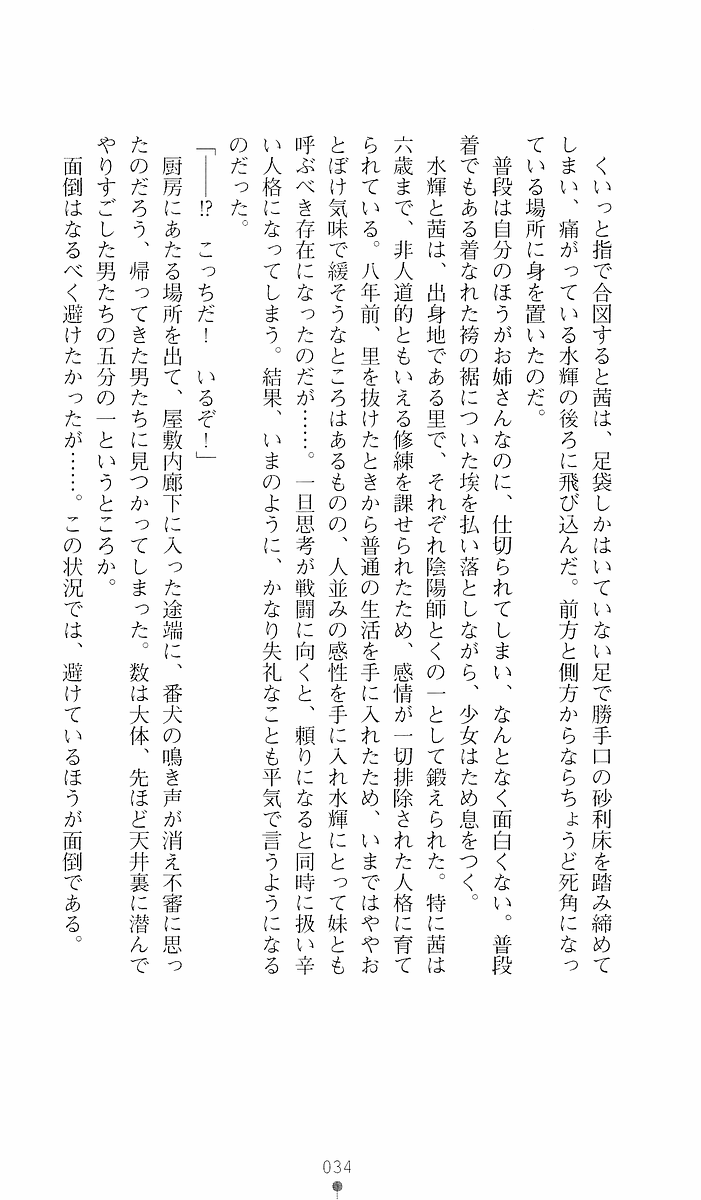 くいっと指で合図すると茜は、足袋しかはいていない足で勝手口の砂利床を踏み締めて
しまい、痛がっている水輝の後ろに飛び込んだ。前方と側方からならちょうど死角になっ
ている場所に身を置いたのだ。
普段は自分のほうがお姉さんなのに、仕切られてしまい、なんとなく面白くない。普段
着でもある着なれた袴の裾についた埃を払い落としながら、少女はため息をつく。
水輝と茜は、出身地である里で、それぞれ陰陽師とくの一として鍛えられた。特に茜は
六歳まで、非人道的ともいえる修練を課せられたため、感情が一切排除された人格に育て
られている。八年前、里を抜けたときから普通の生活を手に入れたため、いまではややお
とぼけ気味で緩そうなところはあるものの、人並みの感性を手に入れ水輝にとって妹とも
呼ぶべき存在になったのだが……。一旦思考が戦闘に向くと、頼りになると同時に扱い辛
い人格になってしまう。結果、いまのように、かなり失礼なことも平気で言うようになる
のだった。
「――!?　こっちだ！　いるぞ！」
厨房にあたる場所を出て、屋敷内廊下に入った途端に、番犬の鳴き声が消え不審に思っ
たのだろう、帰ってきた男たちに見つかってしまった。数は大体、先ほど天井裏に潜んで
やりすごした男たちの五分の一というところか。
面倒はなるべく避けたかったが……。この状況では、避けているほうが面倒である。
034